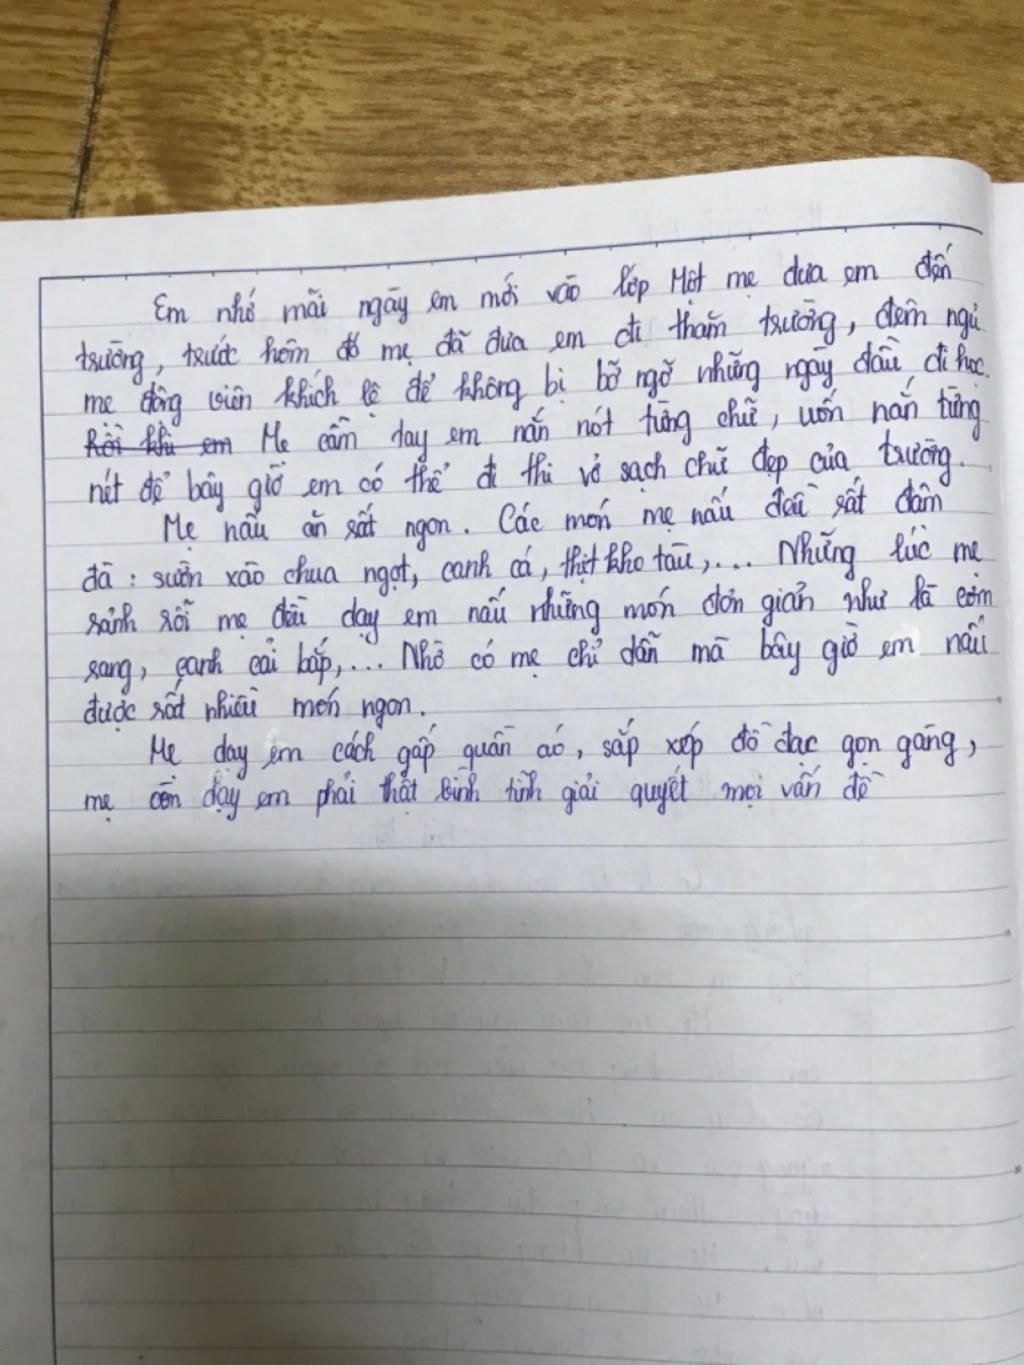 Em nhớ mãi ngày em mới vào lớp Một mẹ đưa em đến
trường, trước hôm đó mẹ đã đưa em đi thăm trường, đêm ngủ
mẹ động viên khích lệ để không bị bỡ ngỡ những ngày đầu đi học.
Hồi khi em Mẹ cầm tay em nắn nót từng chữ, uốn nắn từng
nét để bây giờ em có thể đi thi vở sạch chữ đẹp của trường.
Mẹ nấu ăn rất ngon. Các món mẹ nấu đều rất đậm
đà: sườn xào chua ngọt, canh cá, thịt kho tàu,... Những lúc mẹ
rảnh rỗi mẹ đều dạy em nấu những món đơn giản như là cơm
rang, canh cải bắp,... Nhờ có mẹ chỉ dẫn mà bây giờ em nấu
được rất nhiều món ngon.
Mẹ dạy em cách gấp quần áo, sắp xếp đồ đạc gọn gàng,
mẹ còn dạy em phải thật bình tĩnh giải quyết mọi vấn đề